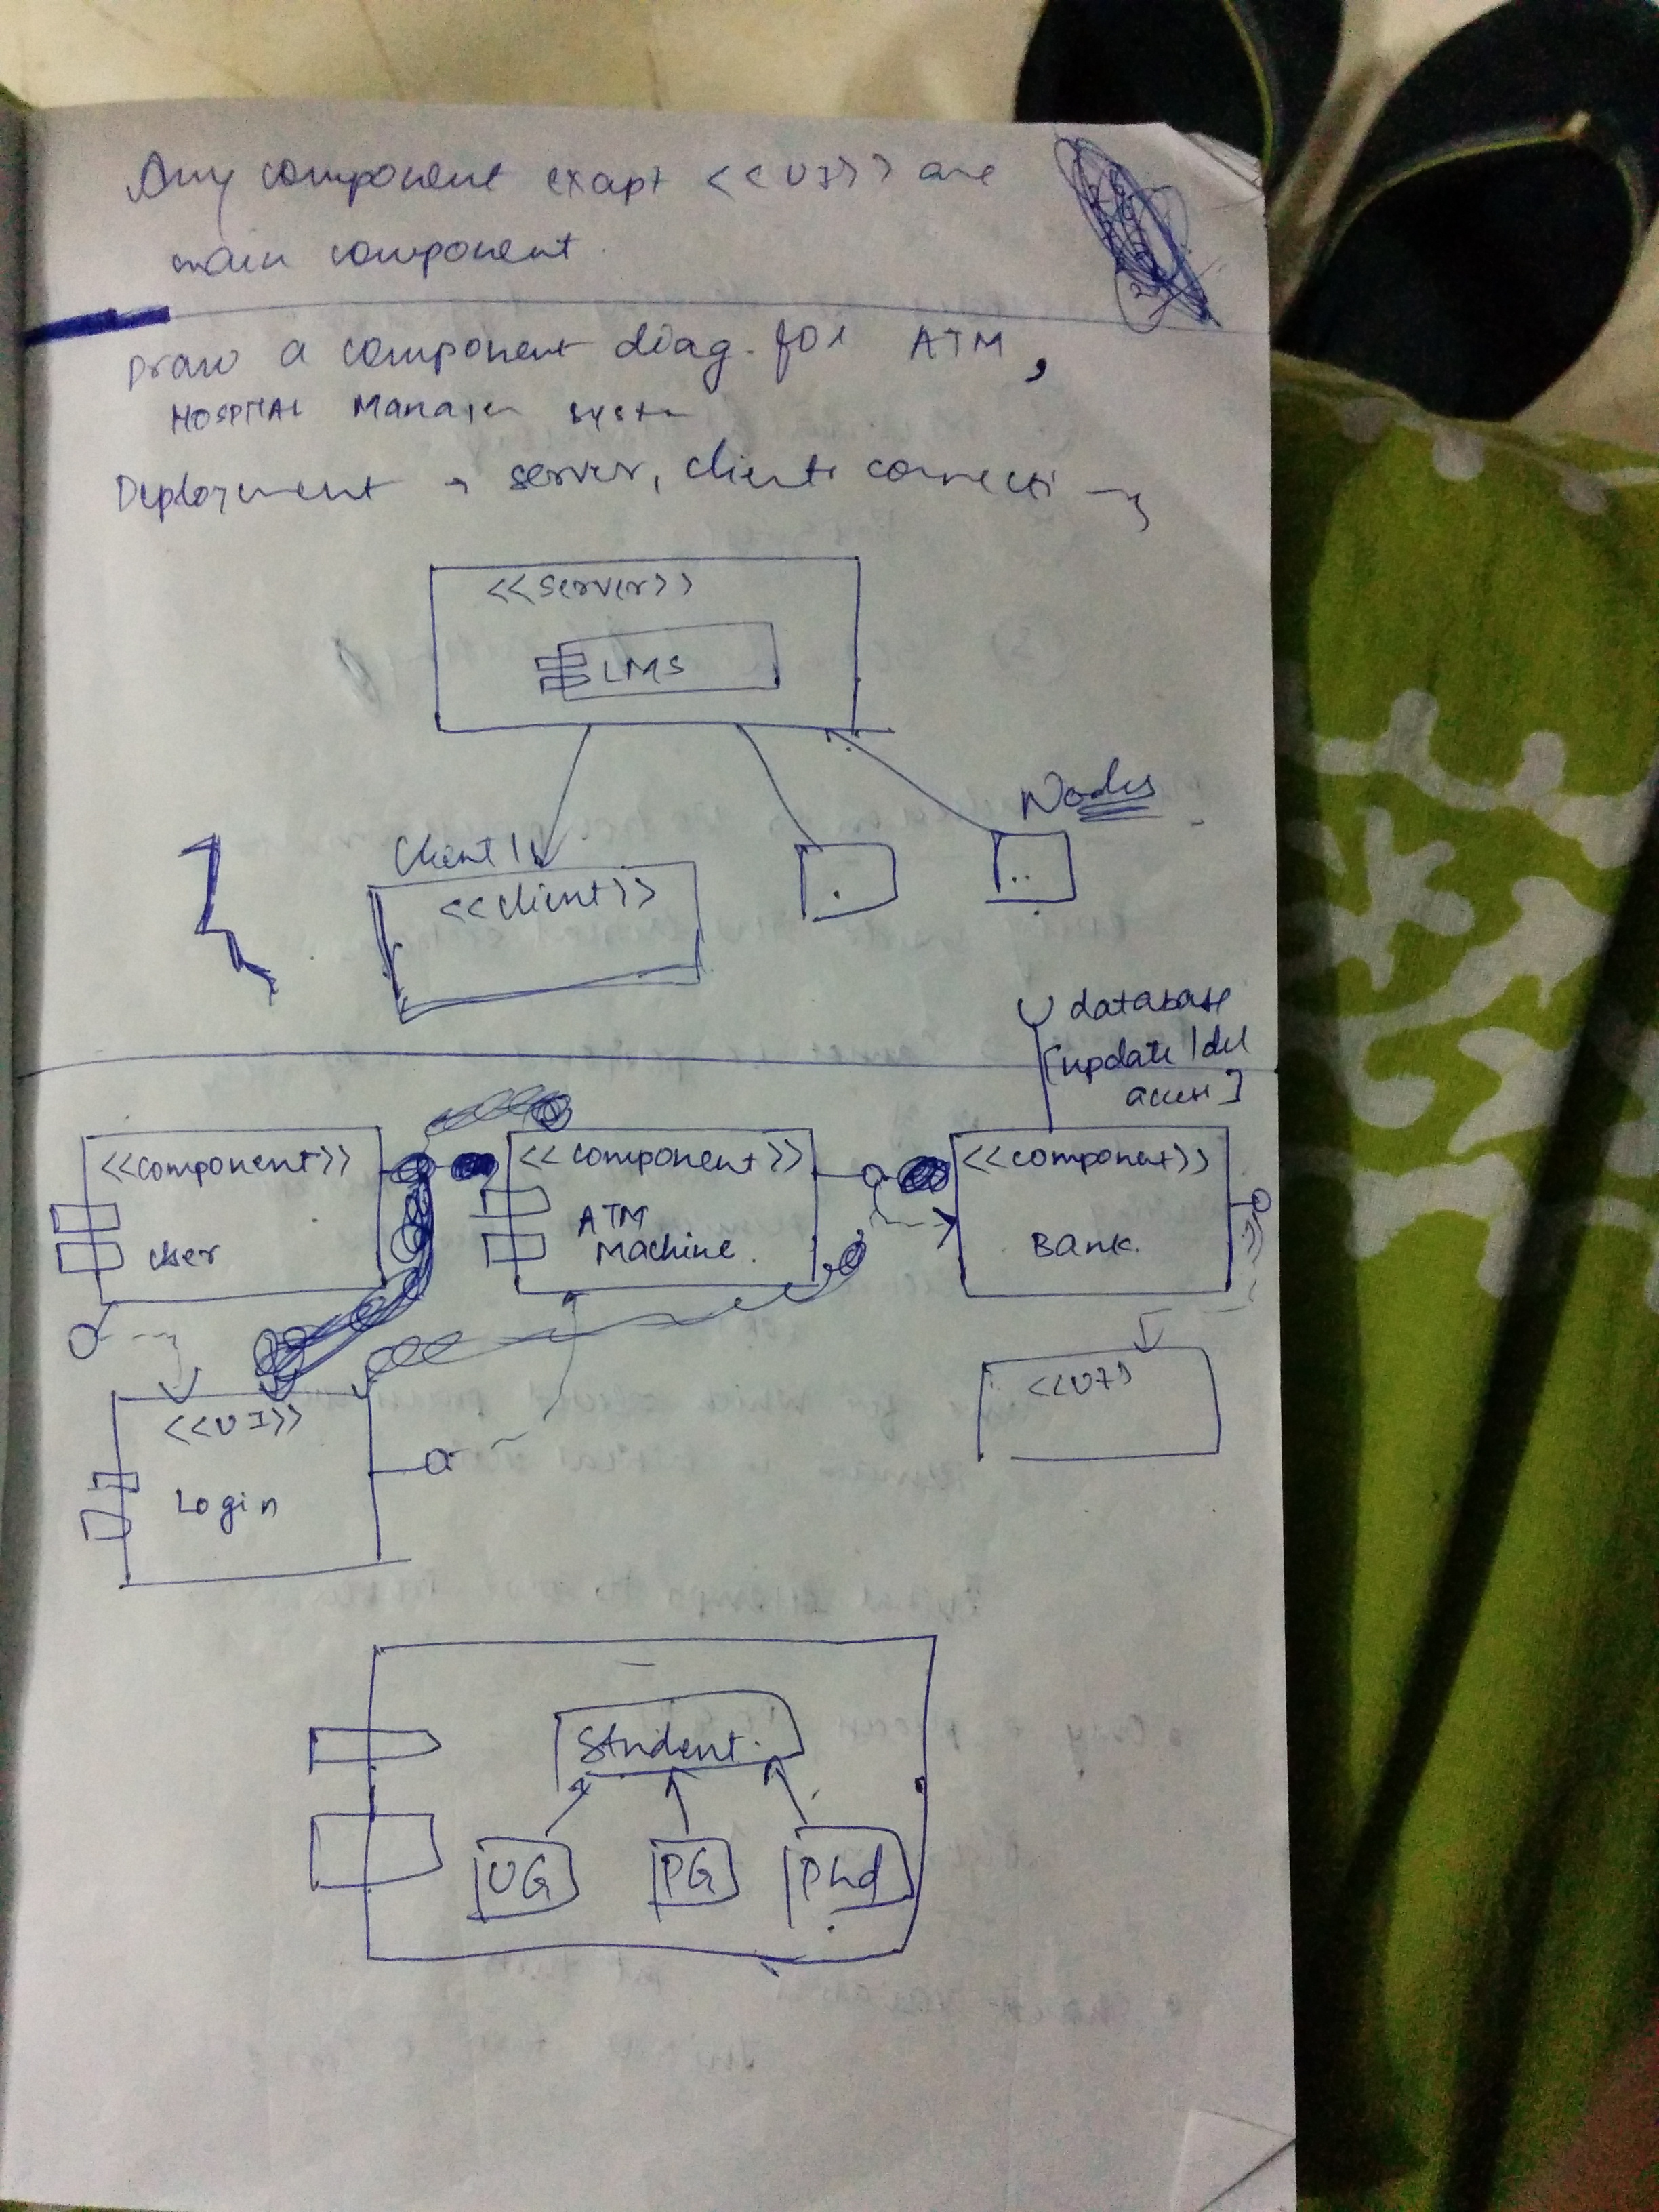 Any component exapt <<UI>> are
main component.
Draw a component diag. for ATM,
HOSPITAL Manager syste
Deployment → server, clients
<<server>>
LMS
Nodes
Client 1
<<client>>
database
[update / del
access]
<<component>>
User
<<component>>
ATM
Machine.
<<component>>
Bank.
<<UI>>
Login
<<UI>>
Student.
UG
PG
Phd